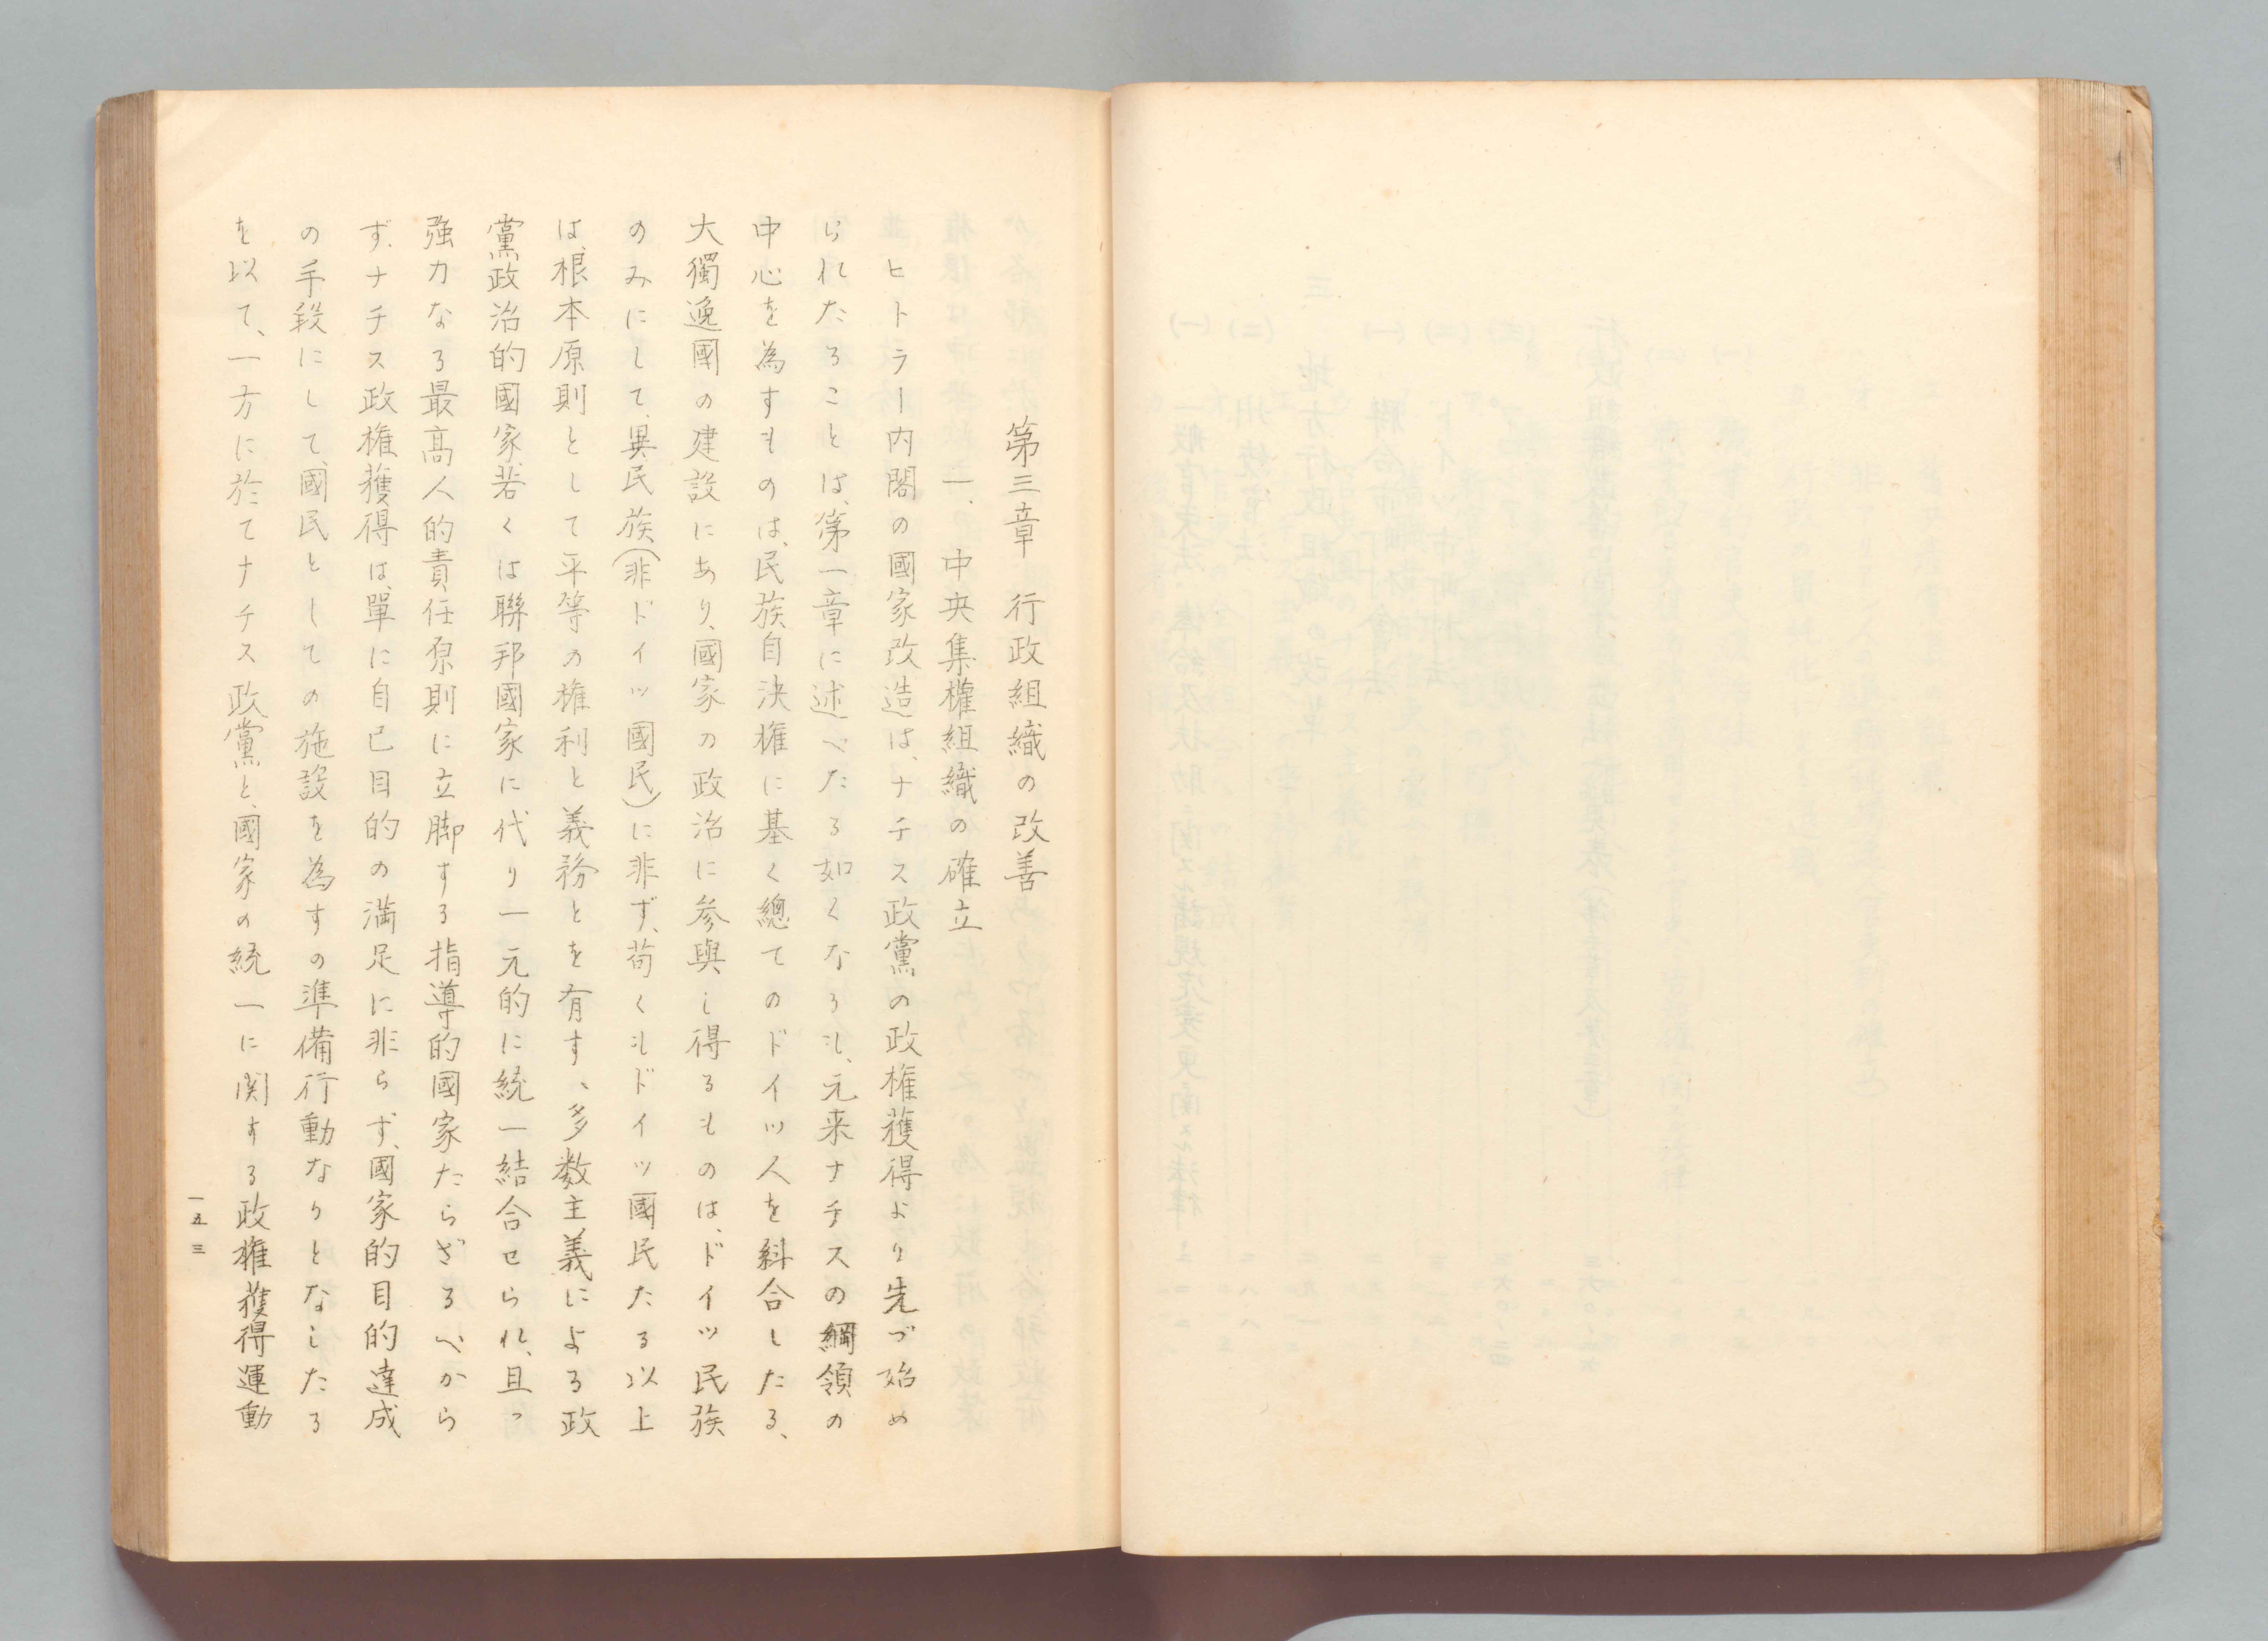 第三章 行政組織の改善
一、中央集權組織の確立
ヒトラー内閣の國家改造は、ナチス政黨の政権獲得より先づ始め
られたることは、第一章に述べたる如くなるも、元来ナチスの綱領の
中心を為すものは、民族自決権に基く總てのドイツ人を糾合したる、
大獨逸國の建設にあり、國家の政治に参與し得るものは、ドイツ民族
のみにして、異民族(非ドイツ國民)に非ず、苟くもドイツ國民たる以上
は、根本原則として平等の権利と義務とを有す、多数主義による政
黨政治的國家若くは聯邦國家に代り一元的に統一結合せられ、且つ
強力なる最高人的責任原則に立脚する指導的國家たらざるべから
ず、ナチス政権獲得は、單に自己目的の満足に非らず、國家的目的達成
の手段にして、國民としての施設を為すの準備行動なりとなしたる
を以て、一方に於てナチス政黨と、國家の統一に関する政権獲得運動
一五三